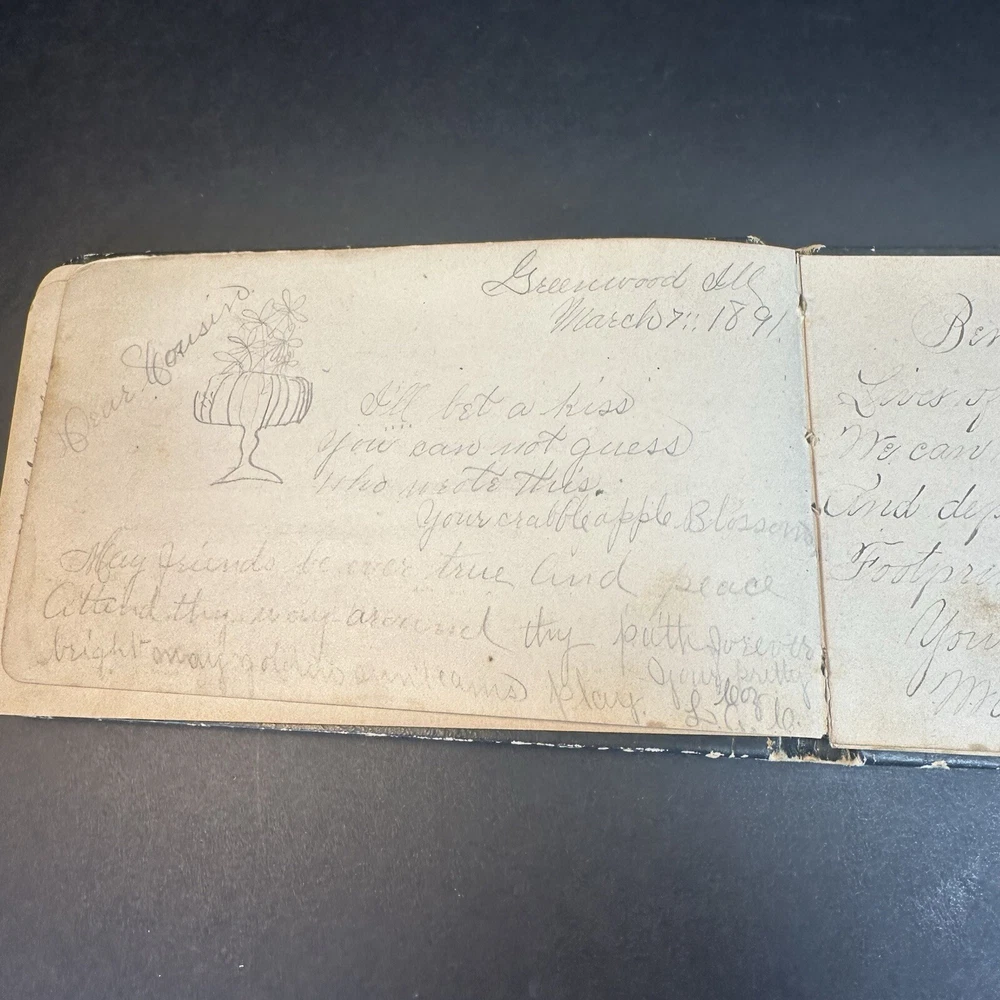 Greenwood Ill
March 7th 1891
Dear Cousin.
I'll bet a kiss
You can not guess
Who wrote this.
Your crabbleapple Blossom
May friends be ever true And peace
Attend thy way around thy path forever
bright may golden sunbeams play.
Your pretty
Coz
L.
Ben
Lives of
We can
And dep
Footpri
You